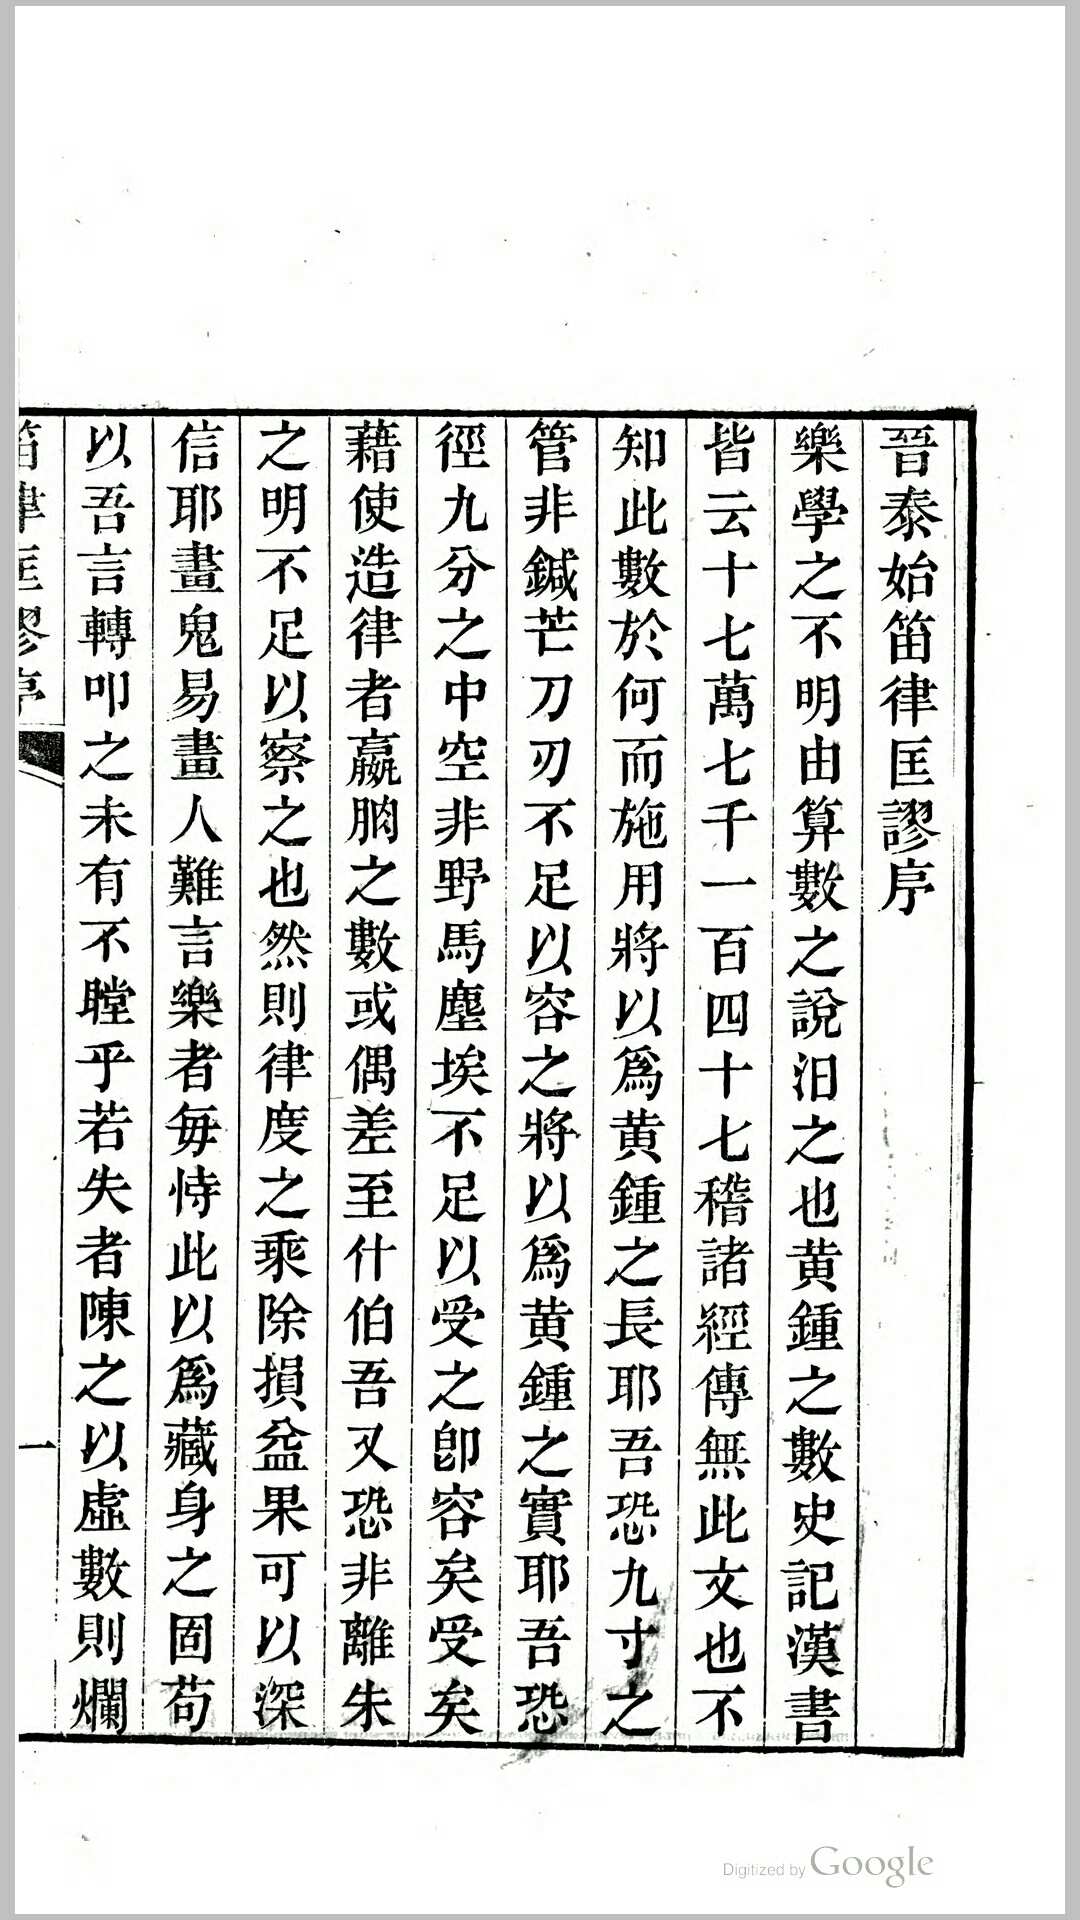 晉泰始笛律匡謬序
樂學之不明由算數之說汩之也黃鍾之數史記漢書
皆云十七萬七千一百四十七稽諸經傳無此文也不
知此數於何而施用將以爲黃鍾之長耶吾恐九寸之
管非鍼芒刀刃不足以容之將以爲黃鍾之實耶吾恐
徑九分之中空非野馬塵埃不足以受之卽容矣受矣
藉使造律者嬴朒之數或偶差至什伯吾又恐非離朱
之明不足以察之也然則律度之乘除損益果可以深
信耶畫鬼易畫人難言樂者每恃此以爲藏身之固苟
以吾言轉叩之未有不瞠乎若失者陳之以虛數則爛
笛律匡謬序
一
Digitized by Google